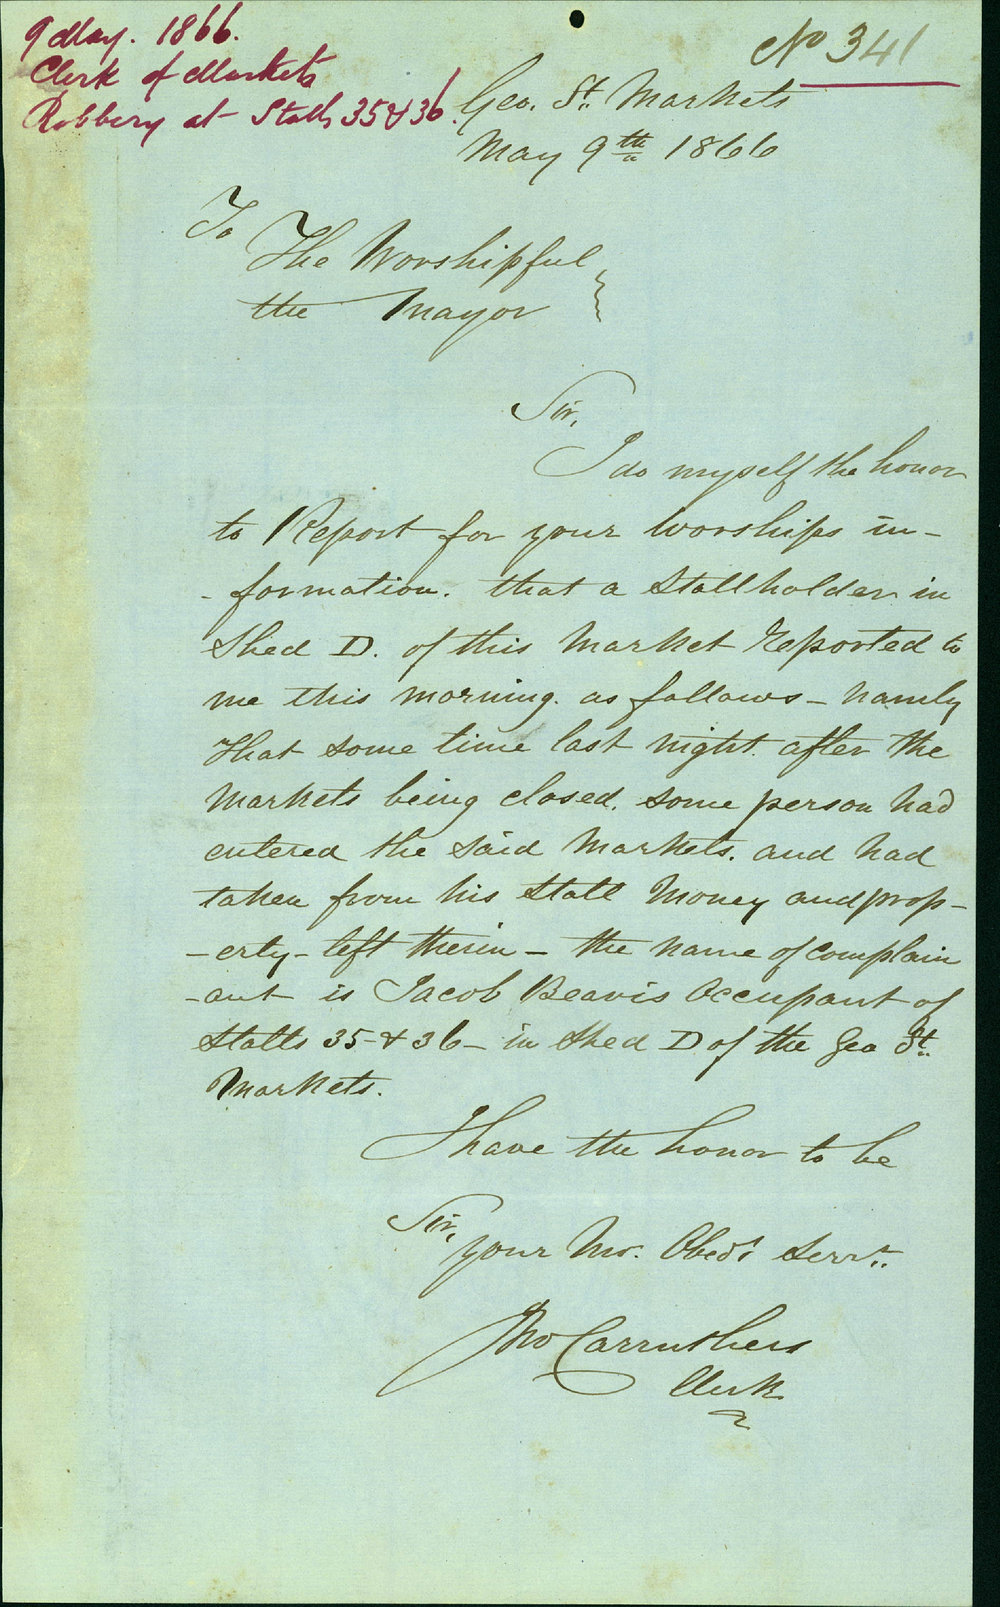 9 May. 1866.
Clerk of Markets
Robbery at Stalls 35 & 36.
No 341
Geo. St. Markets
May 9th 1866
To
The Worshipful
the Mayor
Sir,
I do myself the honor
to Report for your worships in-
-formation. that a Stallholder in
Shed D. of this Market Reported to
me this morning. as follows - namely
that some time last night. after the
Markets being closed. some person had
entered the said Markets. and had
taken from his Stall Money and prop-
-erty - left therin - the name of complain
-ant is Jacob Beavis Occupant of
Stalls 35 & 36 - in Shed D of the Geo St.
Markets.
I have the honor to be
Sir,
your Mo. Obedt Servt.
Jno Carruthers
Clerk